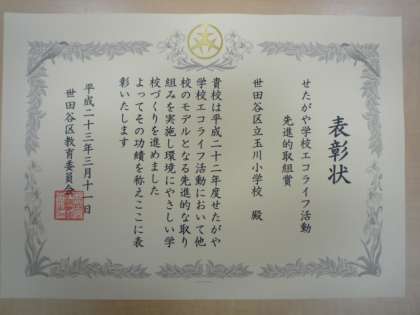 表彰状
せたがや学校エコライフ活動
先進的取組賞
世田谷区立玉川小学校 殿
貴校は平成二十二年度せたがや
学校エコライフ活動において他
校のモデルとなる先進的な取り
組みを実施し環境にやさしい学
校づくりを進めました
よってその功績を称えここに表
彰いたします
平成二十三年三月十一日
世田谷区教育委員会